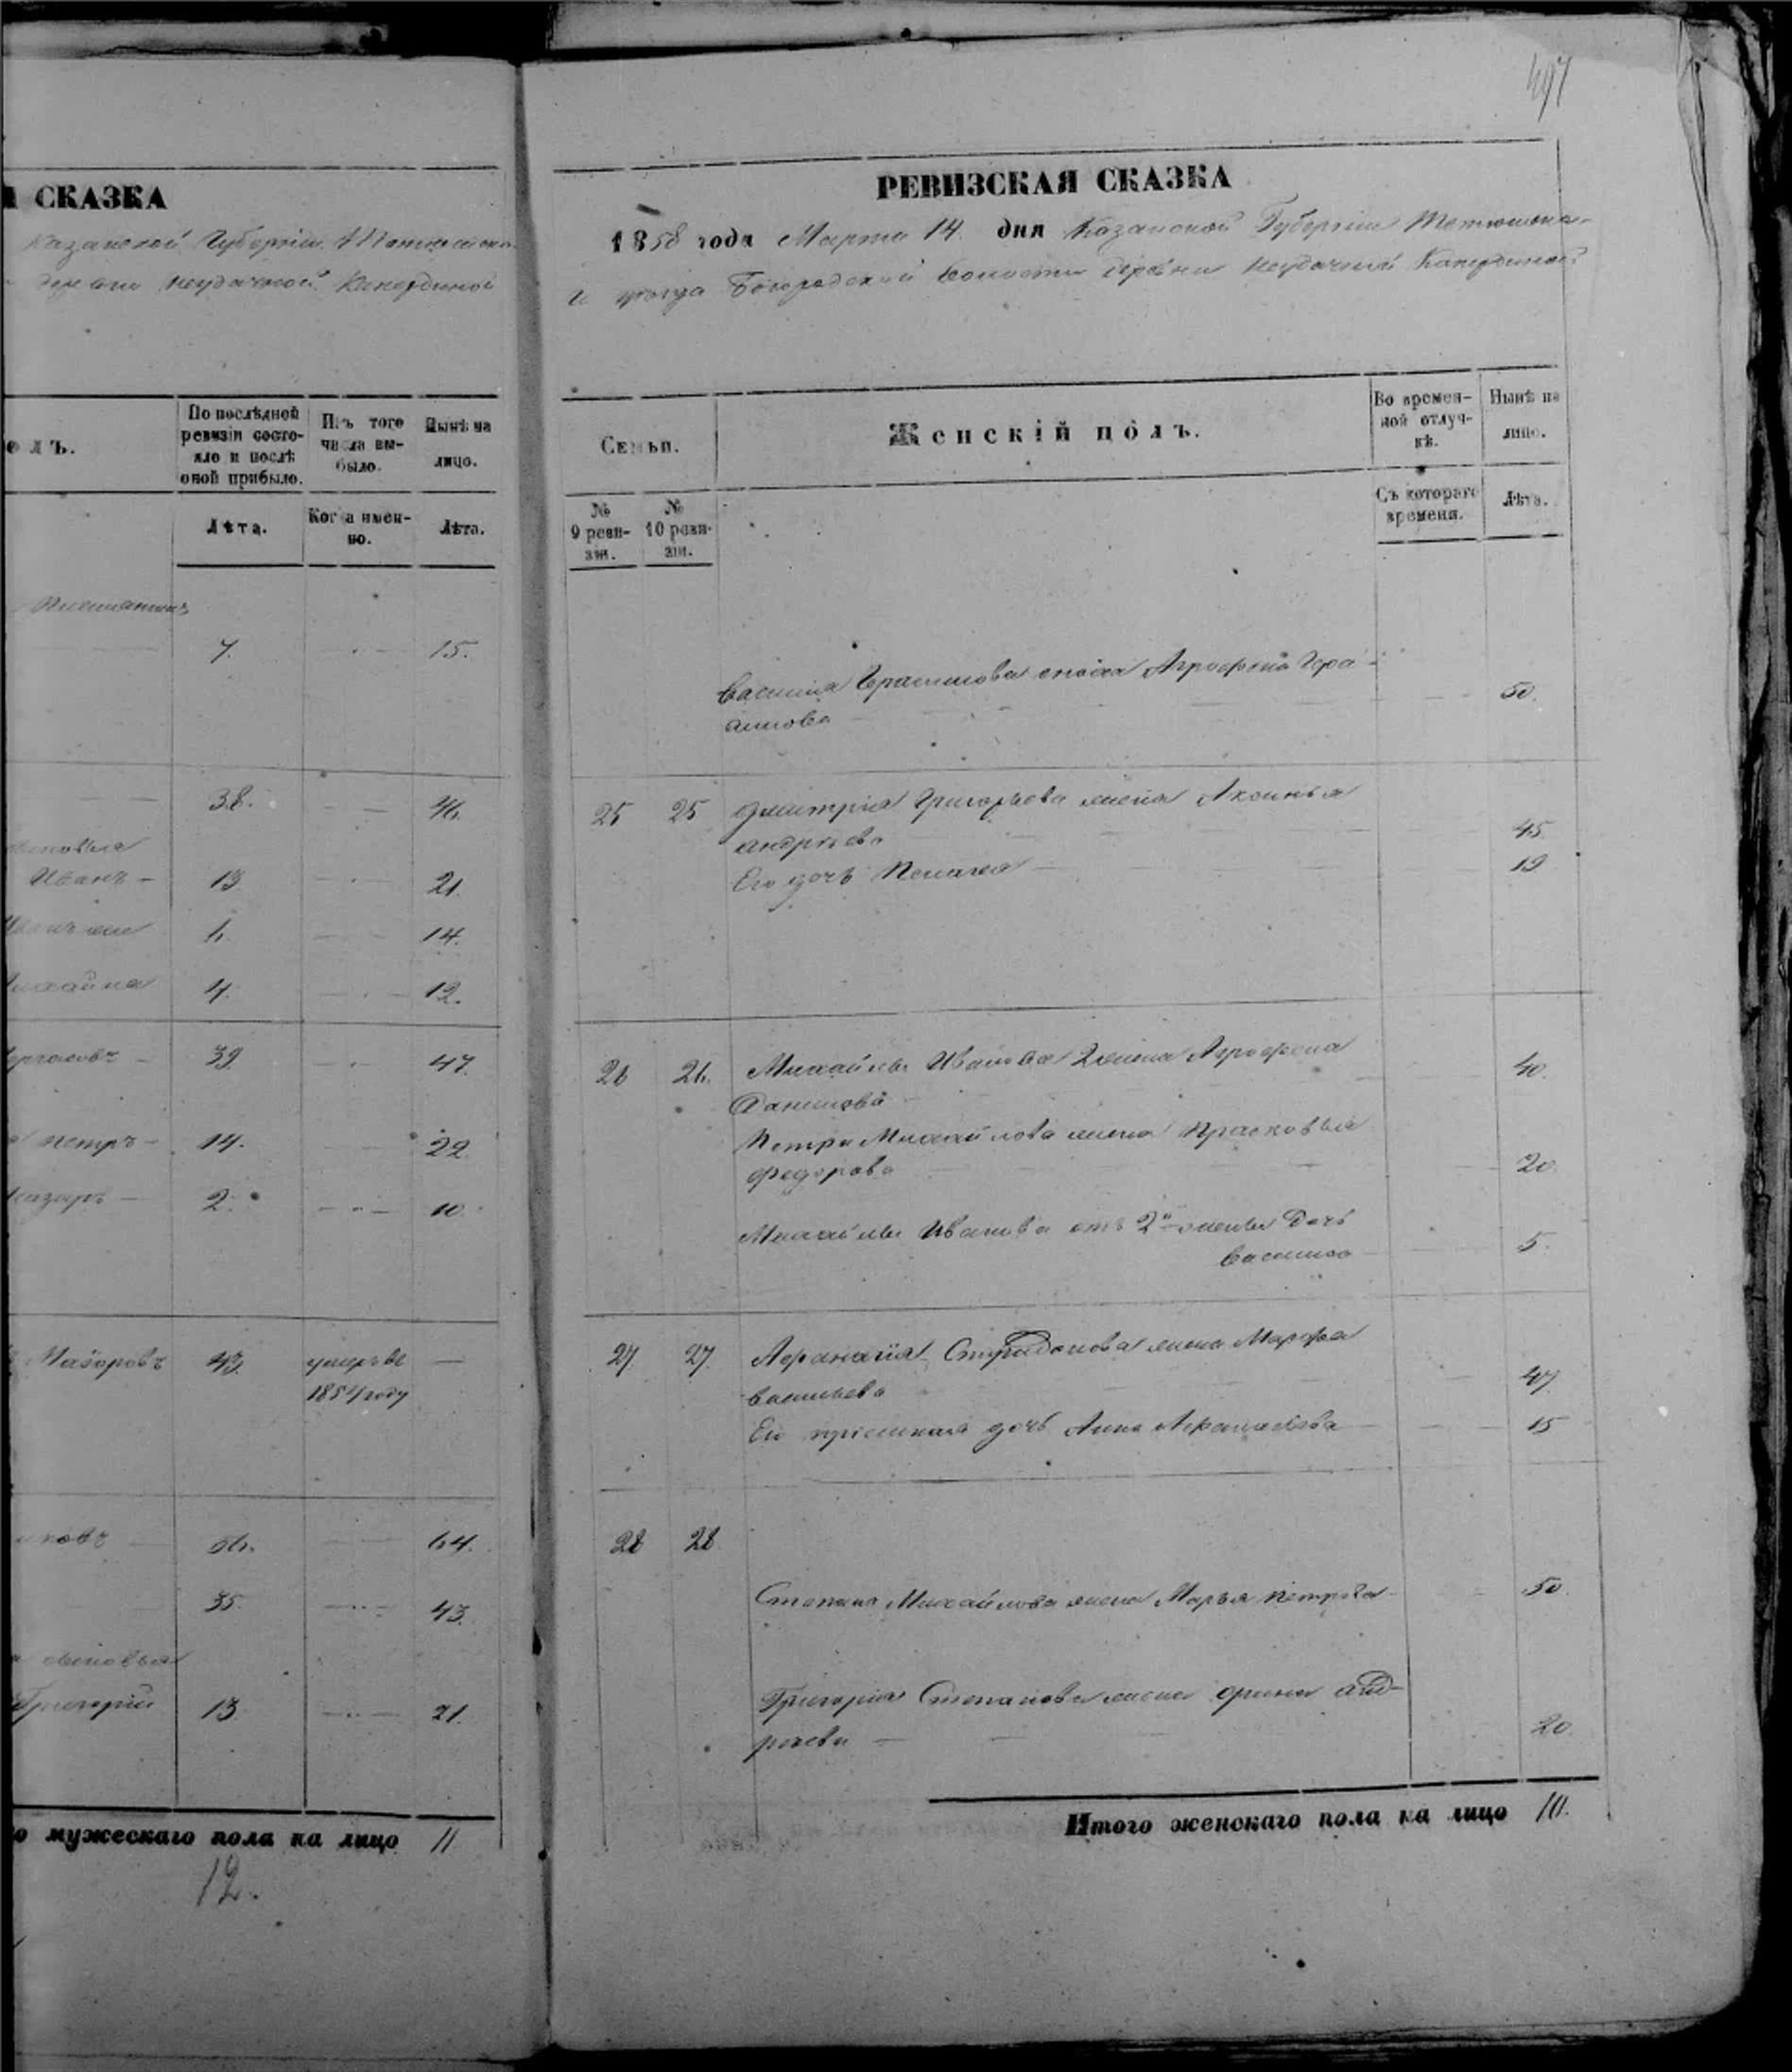 СКАЗКА
Казанской Губернiи
деревни Неудачной Каnердиной
олъ.
По послѣдной ревизiи состояло и послѣ оной прибыло.
Изъ того числа выбыло.
Нынѣ на лицо.
Лѣта.
Когда именно.
Лѣта.
7. 15.
38. 46.
Иванъ 13 21.
6. 14.
Михайла 4. 12.
39. 47.
Петръ 14. 22
2. 10.
43. умеръ въ
1854 году
56. 64.
35. 43.
сыновья
Григорiй 13 21.
о мужескаго пола на лицо 11
12.
497
РЕВИЗСКАЯ СКАЗКА
1858 года Марта 14 дня Казанской Губернiи Тетюшска-
го уезда Богородской волости деревни Неудачной
Семьи.
Женскiй полъ.
Во временной отлучкѣ.
Нынѣ на лицо.
№ 9 ревизiи.
№ 10 ревизiи.
Съ котораго времени.
Лѣта.
Василья Герасимова сноха Агрофена Гера-
симова 50.
25 25 Дмитрiя Григорьева жена Аксинья
андрѣева 45
Его дочь Пелагея 19
26 26. Михайлы Иванова 2 жена Агрофена
Данилова 40.
Петра Михайлова жена Прасковья
Федорова 20
Михайлы Иванова отъ 2й жены Дочь
Василиса 5.
27 27. Афанасiя жена Марфа
Васильева 47
Его прiемная дочь Анна Афанасьева 15
28 28
Степана Михайлова жена Марья Петрова 50.
Григорiя Степанова жена Орина анд-
реева 20
Итого женскаго пола на лицо 10.